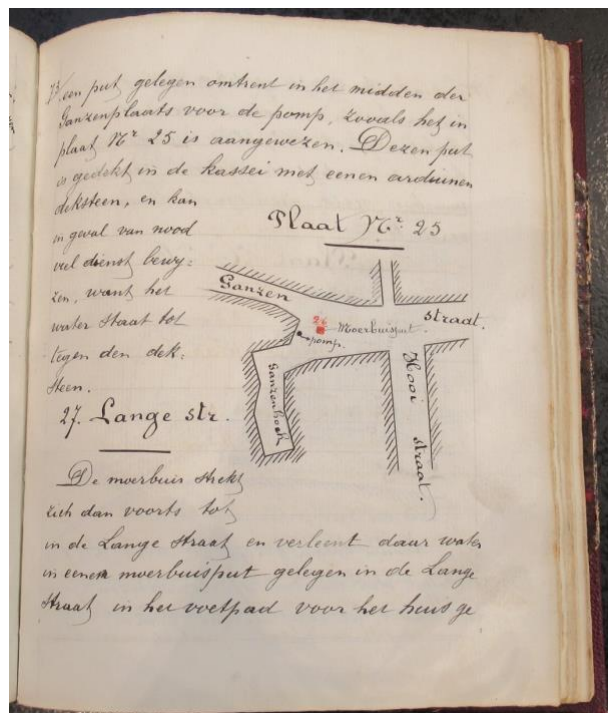 73/ een put gelegen omtrent in het midden der
Ganzenplaats voor de pomp, zooals het in
plaat Nr 25 is aangewezen. Dezen put
is gedekt in de kassei met eenen arduinen
deksteen, en kan
in geval van nood
veel dienst bewy:
zen, want het
water staat tot
tegen den dek:
steen.
Plaat Nr 25
Ganzen
straat.
26
Moerbuisput.
pomp.
Ganzenhoek
Hooi straat.
27. Lange str.
De moerbuis strekt
zich dan voorts tot
in de Lange straat en verleent daar water
in eenen moerbuisput gelegen in de Lange
straat in het voetpad voor het huis ge